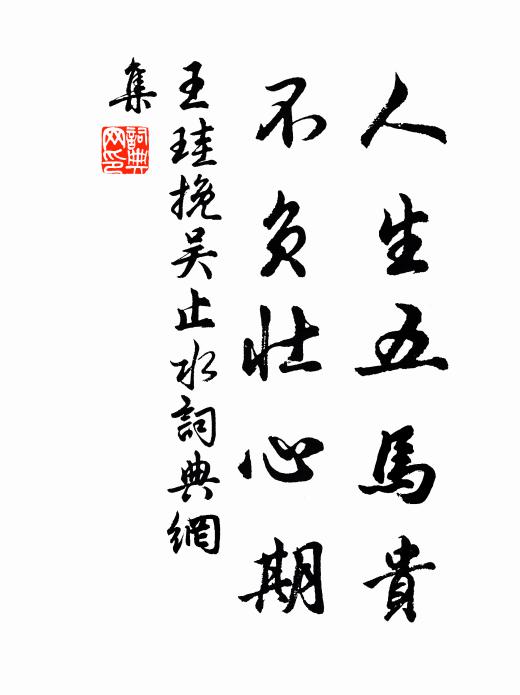 人生五馬貴
不負壯心期
王珪挽吴止水詞典網
集
詞典
网印